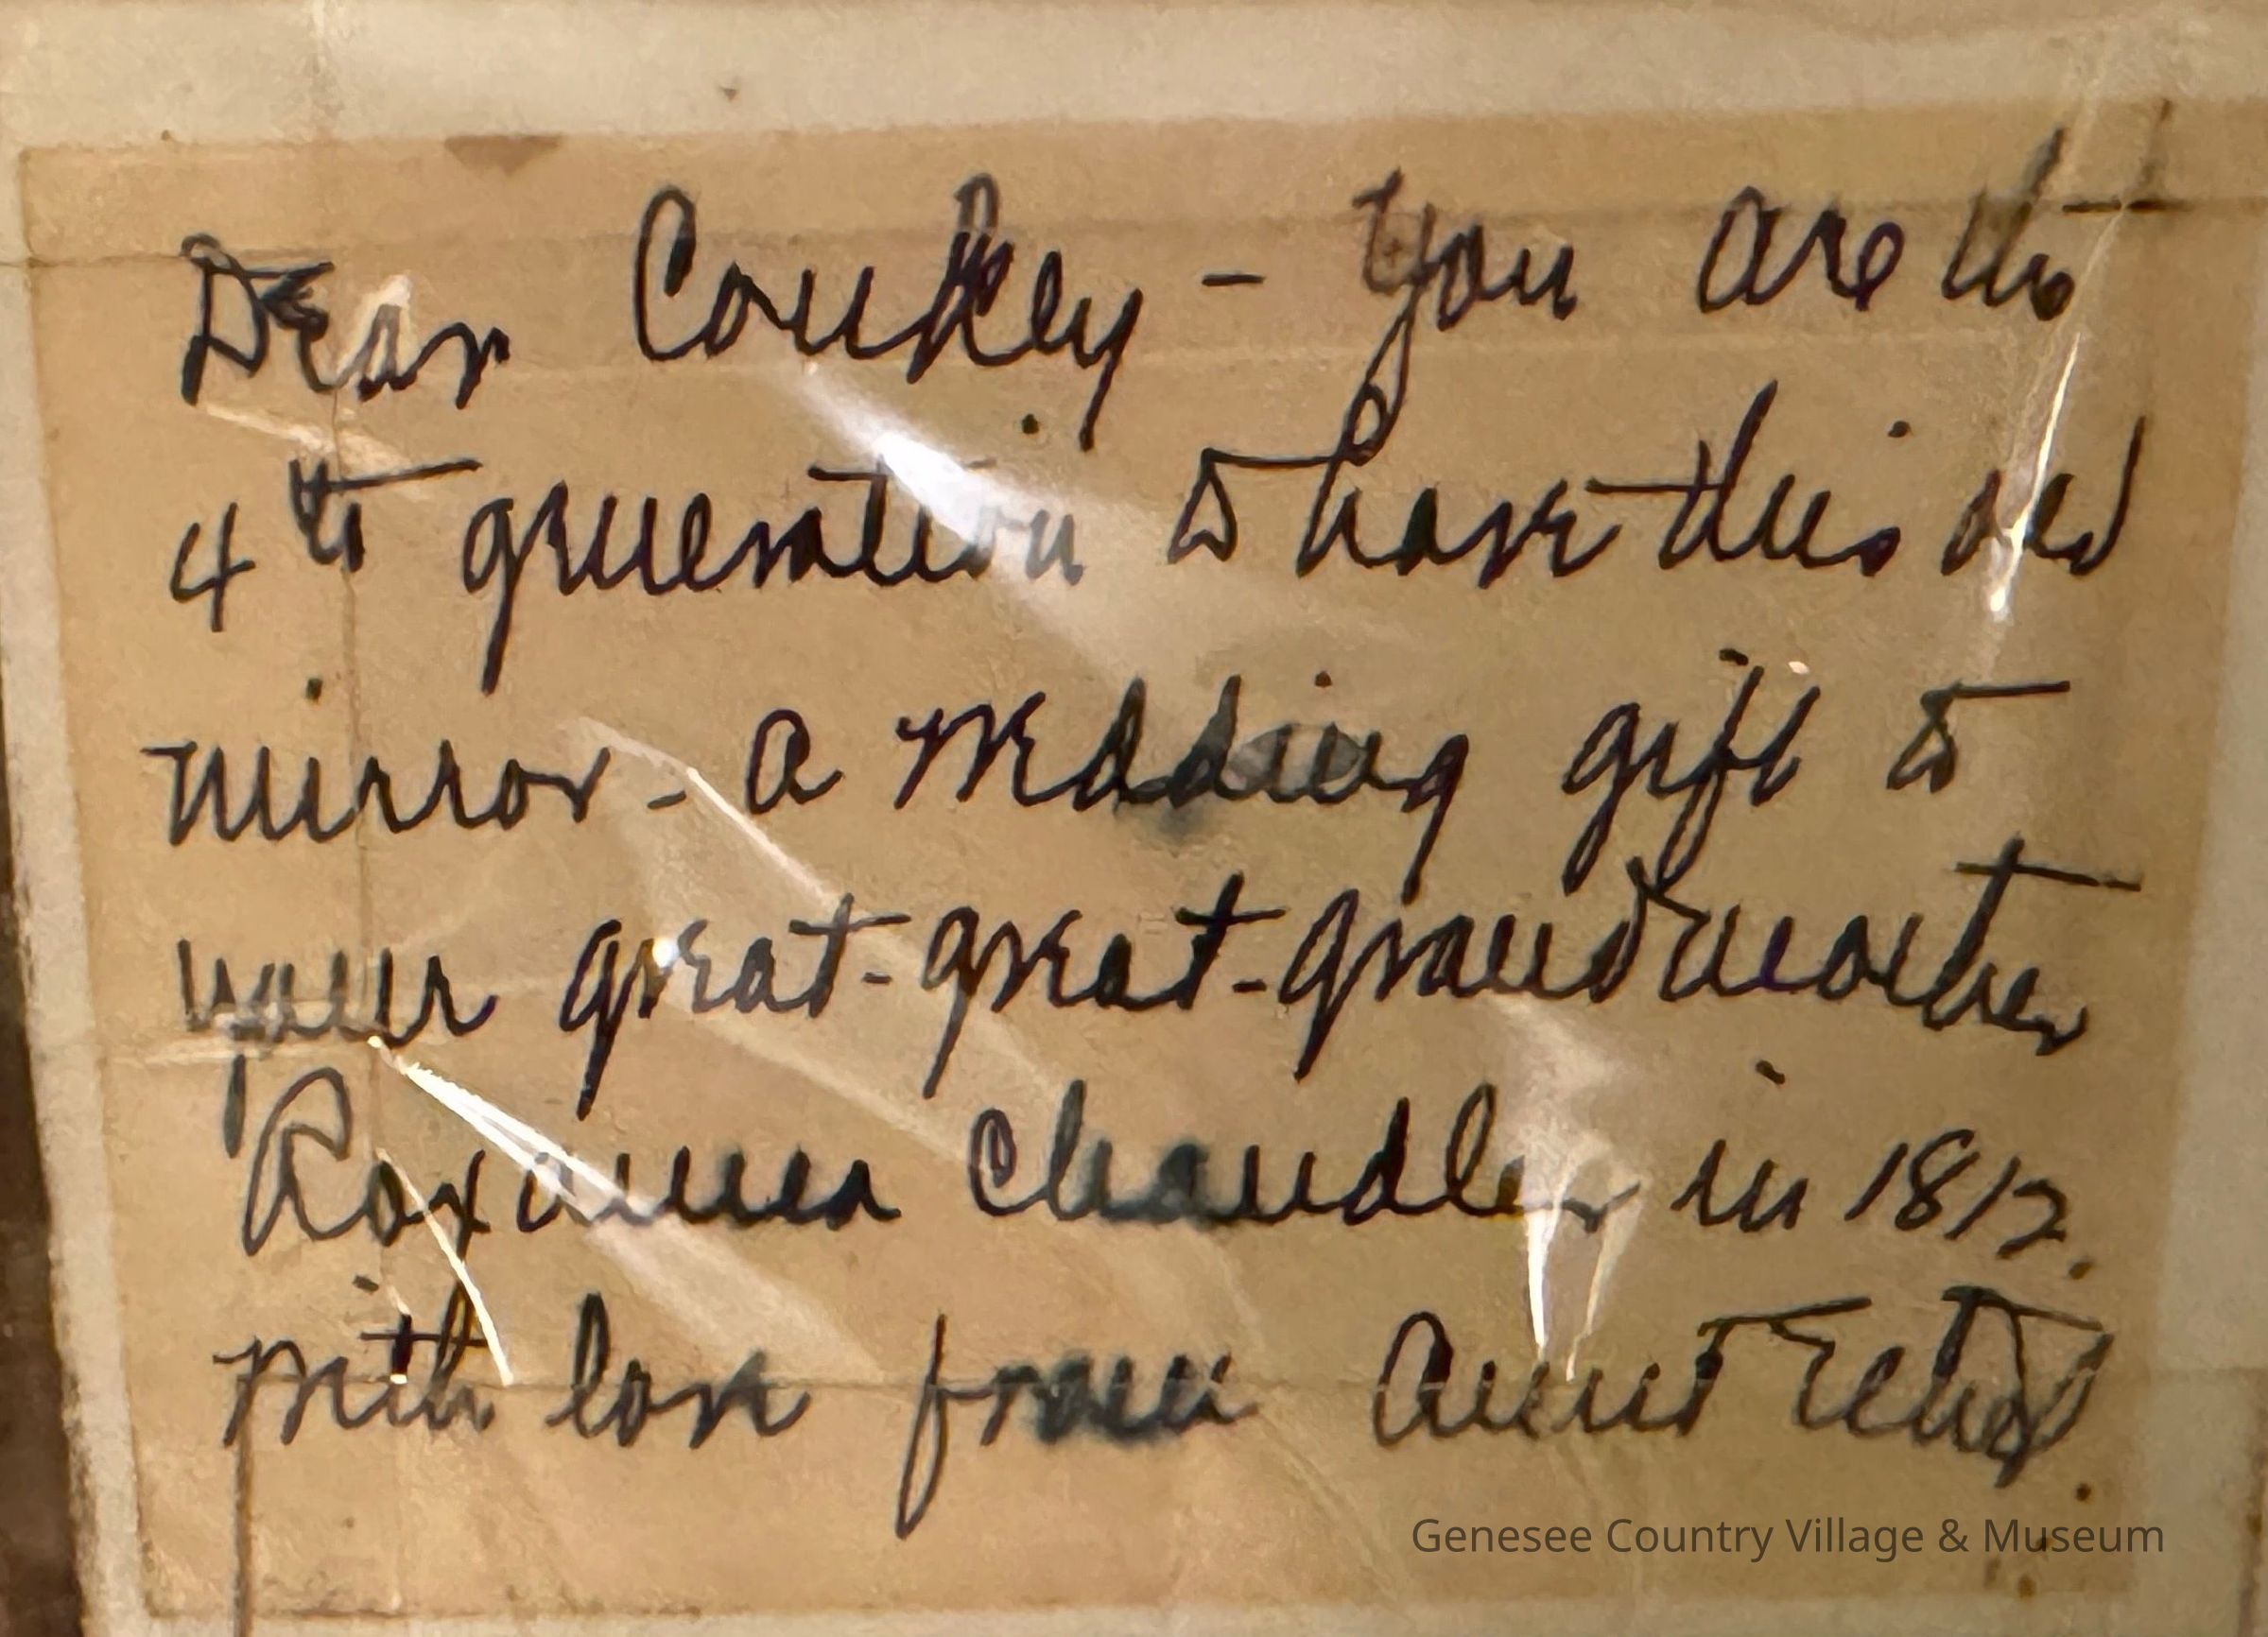 Dear Conkey - you are the
4th generation to have this old
mirror - a wedding gift to
your great-great-grandmother
Roxanna Chandler in 1812.
With love from Aunt
Genesee Country Village & Museum